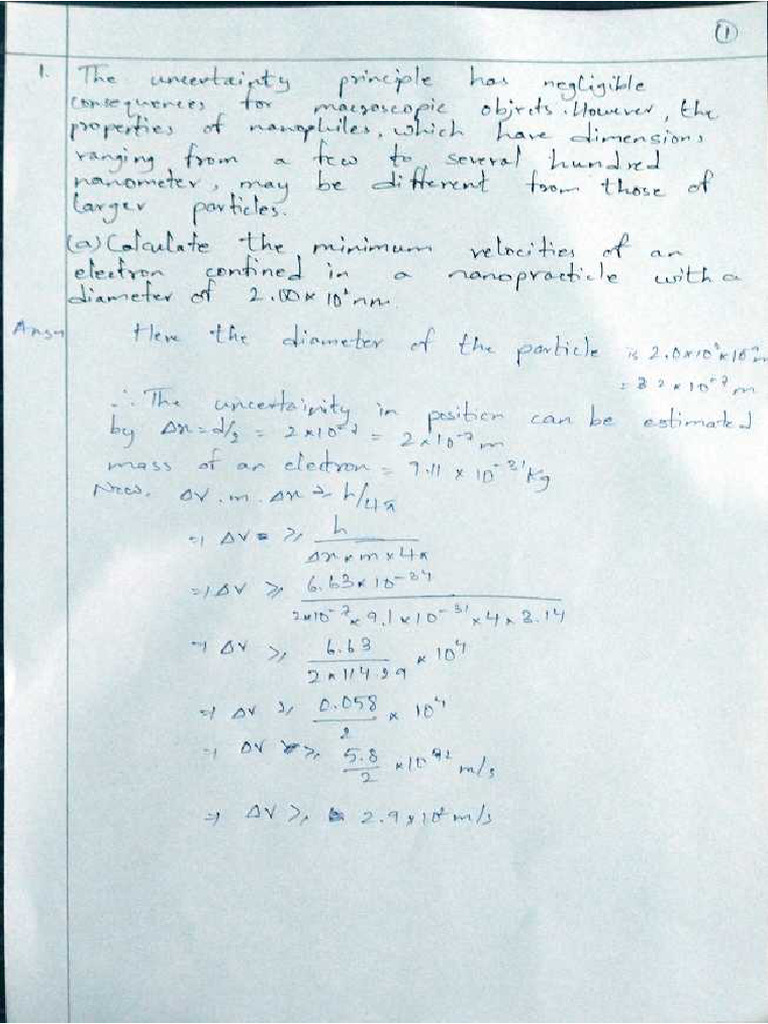 ①
1. The uncertainty principle has negligible
consequences for macroscopic objects. However, the
properties of nanophiles, which have dimensions
ranging from a few to several hundred
nanometer, may be different from those of
larger particles.
(a) Calculate the minimum velocities of an
electron confined in a nanopracticle with a
diameter of 2.00 × 10² nm.
Answ Here the diameter of the particle is 2.0×10²×10⁻⁹ m
= 2 × 10⁻⁷ m
∴ The uncertainity in position can be estimated
by Δx = d/2 = 2×10⁻⁷ = 2×10⁻⁷ m
mass of an electron = 9.11 × 10⁻³¹ kg
Now, Δv . m . Δx ≥ h/4π
⇒ Δv ≥ h
Δx × m × 4π
⇒ Δv ≥ 6.63 × 10⁻³⁴
2×10⁻⁷ × 9.1 × 10⁻³¹ × 4 × 3.14
⇒ Δv ≥ 6.63 × 10⁴
2 × 114.29
⇒ Δv ≥ 0.058 × 10⁴
2
⇒ Δv ≥ 5.8 × 10² m/s
2
⇒ Δv ≥ 2.9 × 10² m/s